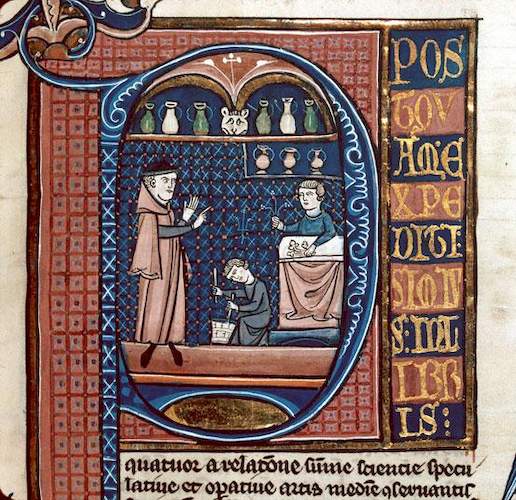 POS
TQU
AM:E
XPE
DITI:
SUMU
S:INL
IBR
IS:
quatuor a relatõne sum̃e scientie specu
latiue et oꝑatiue artis medicĩe ꝯseruantis